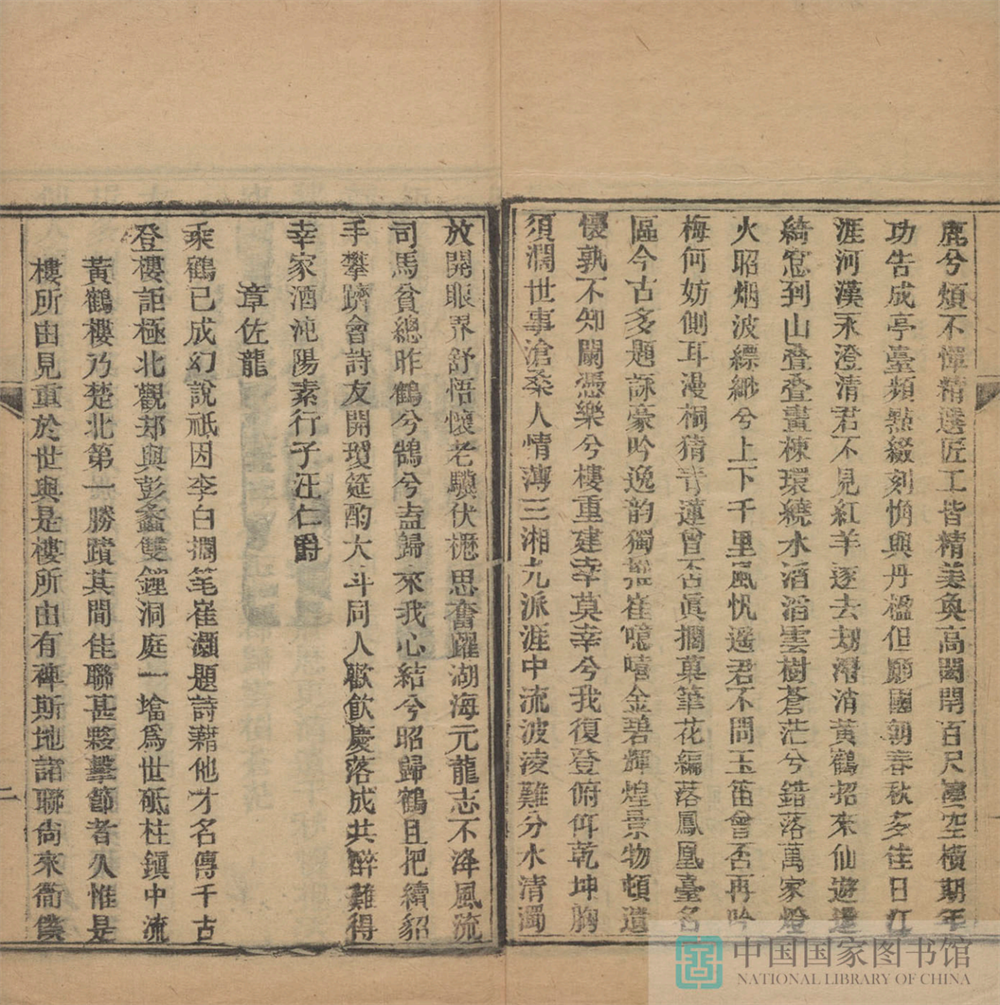 鹿兮煩不憚精選匠工皆精美奐高閣開百尺凌空橫期年
功告成亭臺頻點綴刻悄與丹楹但願國朝春秋多佳日江
涯河漢永澄清君不見紅羊逐去刼潛消黃鶴招來仙遊遠
綺窻到山疊疊畫棟環繞水滔滔雲樹蒼茫兮錯落萬家燈
火昭烟波縹緲兮上下千里風帆遙君不問玉笛曾否再吟
梅何妨側耳漫相猜青蓮曾否真擱藁筆花編落鳳凰臺名
區今古多題詠豪吟逸韵獨推崔噫嘻金碧輝煌景物頓遺
懷孰不知闌憑樂兮樓重建幸莫幸兮我復登俯仰乾坤胸
須濶世事滄桑人情薄三湘九派涯中流波淩難分水清濁
放開眼界舒悟懷老驥伏櫪思奮躍湖海元龍志不降風流
司馬貧總昨鶴兮鵠兮盍歸來我心結兮昭歸鶴且把續貂
手攀躋會詩友開瓊筵酌大斗同人歡飲慶落成共醉難得
幸家酒沌陽素行子汪仁爵
章佐龍
乘鶴已成幻說祇因李白擱筆崔灝題詩藉他才名傳千古
登樓詎極北觀却與彭蠡雙鍾洞庭一壋爲世砥柱鎮中流
黃鶴樓乃楚北第一勝蹟其間佳聯甚夥擊節者久惟是
樓所由見重於世與是樓所由有裨斯地諸聯尙來衢僕
二
中国国家图书馆
NATIONAL LIBRARY OF CHINA